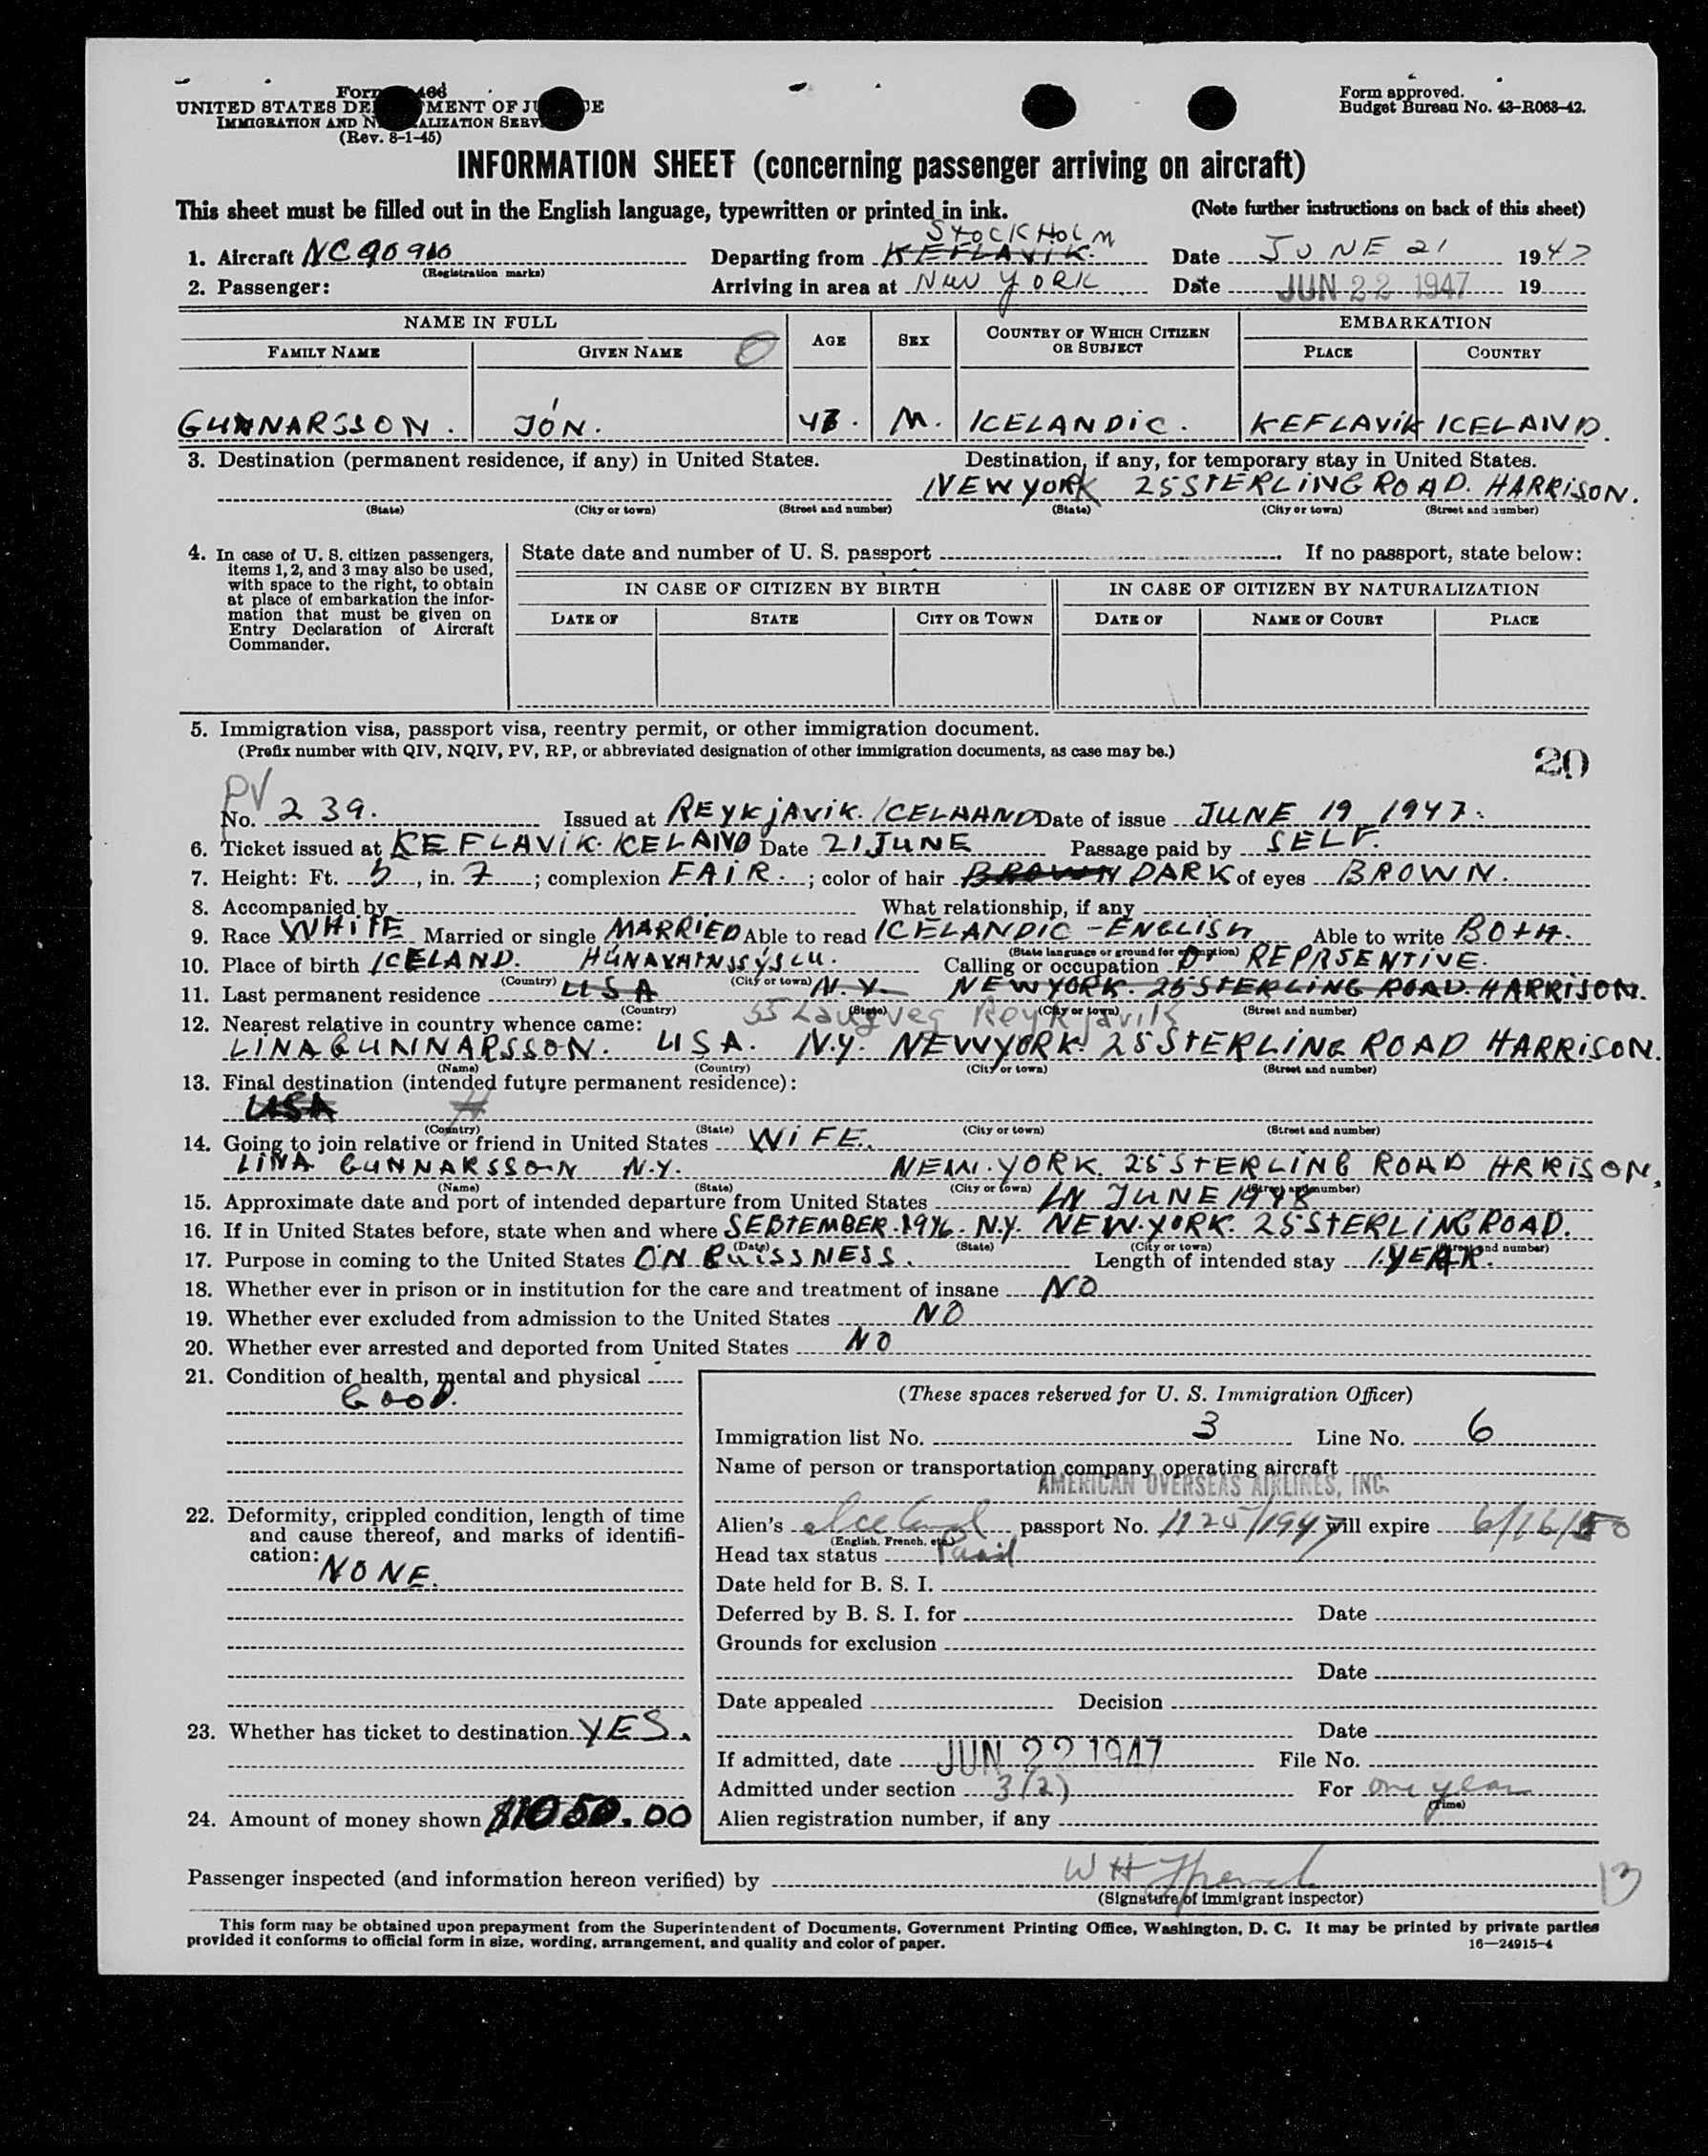 Form 466
UNITED STATES DEPARTMENT OF JUSTICE
IMMIGRATION AND NATURALIZATION SERVICE
(Rev. 8-1-45)
Form approved.
Budget Bureau No. 43-R063-42.
INFORMATION SHEET (concerning passenger arriving on aircraft)
This sheet must be filled out in the English language, typewritten or printed in ink. (Note further instructions on back of this sheet)
STOCKHOLM
1. Aircraft NC90910 Departing from KEFLAVIK. Date JUNE 21 1947
(Registration marks)
2. Passenger: Arriving in area at NEW YORK Date JUN 22 1947 19
NAME IN FULL AGE SEX COUNTRY OF WHICH CITIZEN OR SUBJECT EMBARKATION
FAMILY NAME GIVEN NAME PLACE COUNTRY
GUNNARSSON. JÓN. 47. M. ICELANDIC. KEFLAVÍK ICELAND.
3. Destination (permanent residence, if any) in United States. Destination, if any, for temporary stay in United States.
NEW YORK 25 STERLING ROAD. HARRISON.
(State) (City or town) (Street and number) (State) (City or town) (Street and number)
4. In case of U. S. citizen passengers, items 1, 2, and 3 may also be used, with space to the right, to obtain at place of embarkation the information that must be given on Entry Declaration of Aircraft Commander.
State date and number of U. S. passport . If no passport, state below:
IN CASE OF CITIZEN BY BIRTH IN CASE OF CITIZEN BY NATURALIZATION
DATE OF STATE CITY OR TOWN DATE OF NAME OF COURT PLACE
5. Immigration visa, passport visa, reentry permit, or other immigration document.
(Prefix number with QIV, NQIV, PV, RP, or abbreviated designation of other immigration documents, as case may be.)
20
PV
No. 239. Issued at REYKJAVIK. ICELAND Date of issue JUNE 19 1947.
6. Ticket issued at KEFLAVIK ICELAND Date 21 JUNE Passage paid by SELF.
7. Height: Ft. 5, in. 7; complexion FAIR.; color of hair BROWN DARK of eyes BROWN.
8. Accompanied by What relationship, if any
9. Race WHITE Married or single MARRIED Able to read ICELANDIC - ENGLISH Able to write BOTH.
(State language or ground for exemption)
10. Place of birth ICELAND. HÚNAVATNSSÝSLU. Calling or occupation REPRSENTIVE.
(Country) (City or town)
11. Last permanent residence USA N.Y. NEW YORK. 25 STERLING ROAD. HARRISON.
(Country) (State) (City or town) (Street and number)
55 Laugveg Reykjavik
12. Nearest relative in country whence came:
LINA GUNNARSSON. USA. N.Y. NEW YORK. 25 STERLING ROAD HARRISON.
(Name) (Country) (City or town) (Street and number)
13. Final destination (intended future permanent residence):
USA
(Country) (State) (City or town) (Street and number)
14. Going to join relative or friend in United States WIFE.
LINA GUNNARSSON N.Y. NEW.YORK. 25 STERLING ROAD HRRISON.
(Name) (State) (City or town) (Street and number)
15. Approximate date and port of intended departure from United States IN JUNE 1948
16. If in United States before, state when and where SEPTEMBER.1946. N.Y. NEW.YORK. 25 STERLING ROAD.
(Date) (State) (City or town) (Street and number)
17. Purpose in coming to the United States ON BUISSNESS. Length of intended stay 1.YEAR.
18. Whether ever in prison or in institution for the care and treatment of insane NO
19. Whether ever excluded from admission to the United States NO
20. Whether ever arrested and deported from United States NO
21. Condition of health, mental and physical
GOOD.
22. Deformity, crippled condition, length of time and cause thereof, and marks of identification:
NONE.
23. Whether has ticket to destination YES.
24. Amount of money shown $1050.00
(These spaces reserved for U. S. Immigration Officer)
Immigration list No. 3 Line No. 6
Name of person or transportation company operating aircraft
AMERICAN OVERSEAS AIRLINES, INC.
Alien's Iceland passport No. 1125/1947 will expire 6/16/50
(English, French, etc.)
Head tax status Paid
Date held for B. S. I.
Deferred by B. S. I. for Date
Grounds for exclusion
Date
Date appealed Decision
Date
If admitted, date JUN 22 1947 File No.
Admitted under section 3(2) For one year
(Time)
Alien registration number, if any
Passenger inspected (and information hereon verified) by W H
13
(Signature of immigrant inspector)
This form may be obtained upon prepayment from the Superintendent of Documents, Government Printing Office, Washington, D. C. It may be printed by private parties
provided it conforms to official form in size, wording, arrangement, and quality and color of paper. 16—24915-4